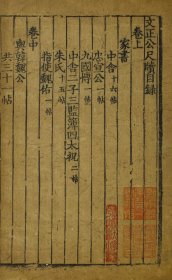 文正公尺牘目錄
卷上
家書
中舍十六帖
忠宣公一帖
九國博一帖
中舍二子三監簿四太祝二帖
朱氏十五帖
指使魏佑一帖
卷中
與韓魏公
共三十一帖